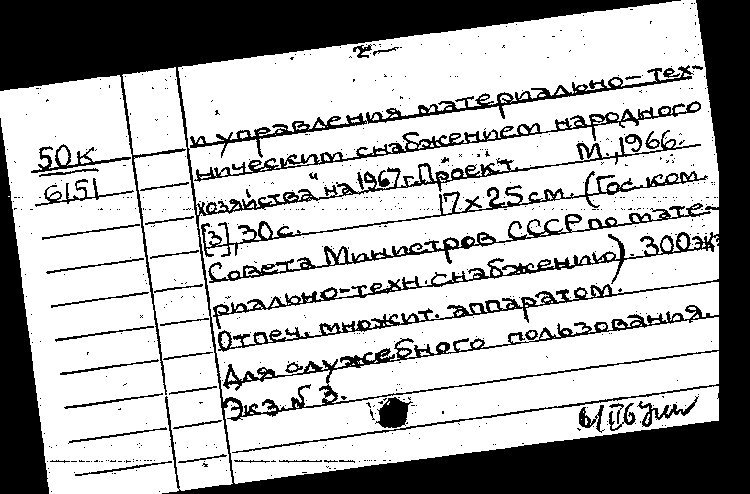 2—
и управления материально-тех-
50к
ническим снабжением народного
6151
хозяйства" на 1967 г. Проект. М., 1966.
[3], 30 с. 17х25 см. (Гос. ком.
Совета Министров СССР по мате-
риально-техн. снабжению). 300 экз.
Отпеч. множит. аппаратом.
Для служебного пользования.
Экз. № 3.